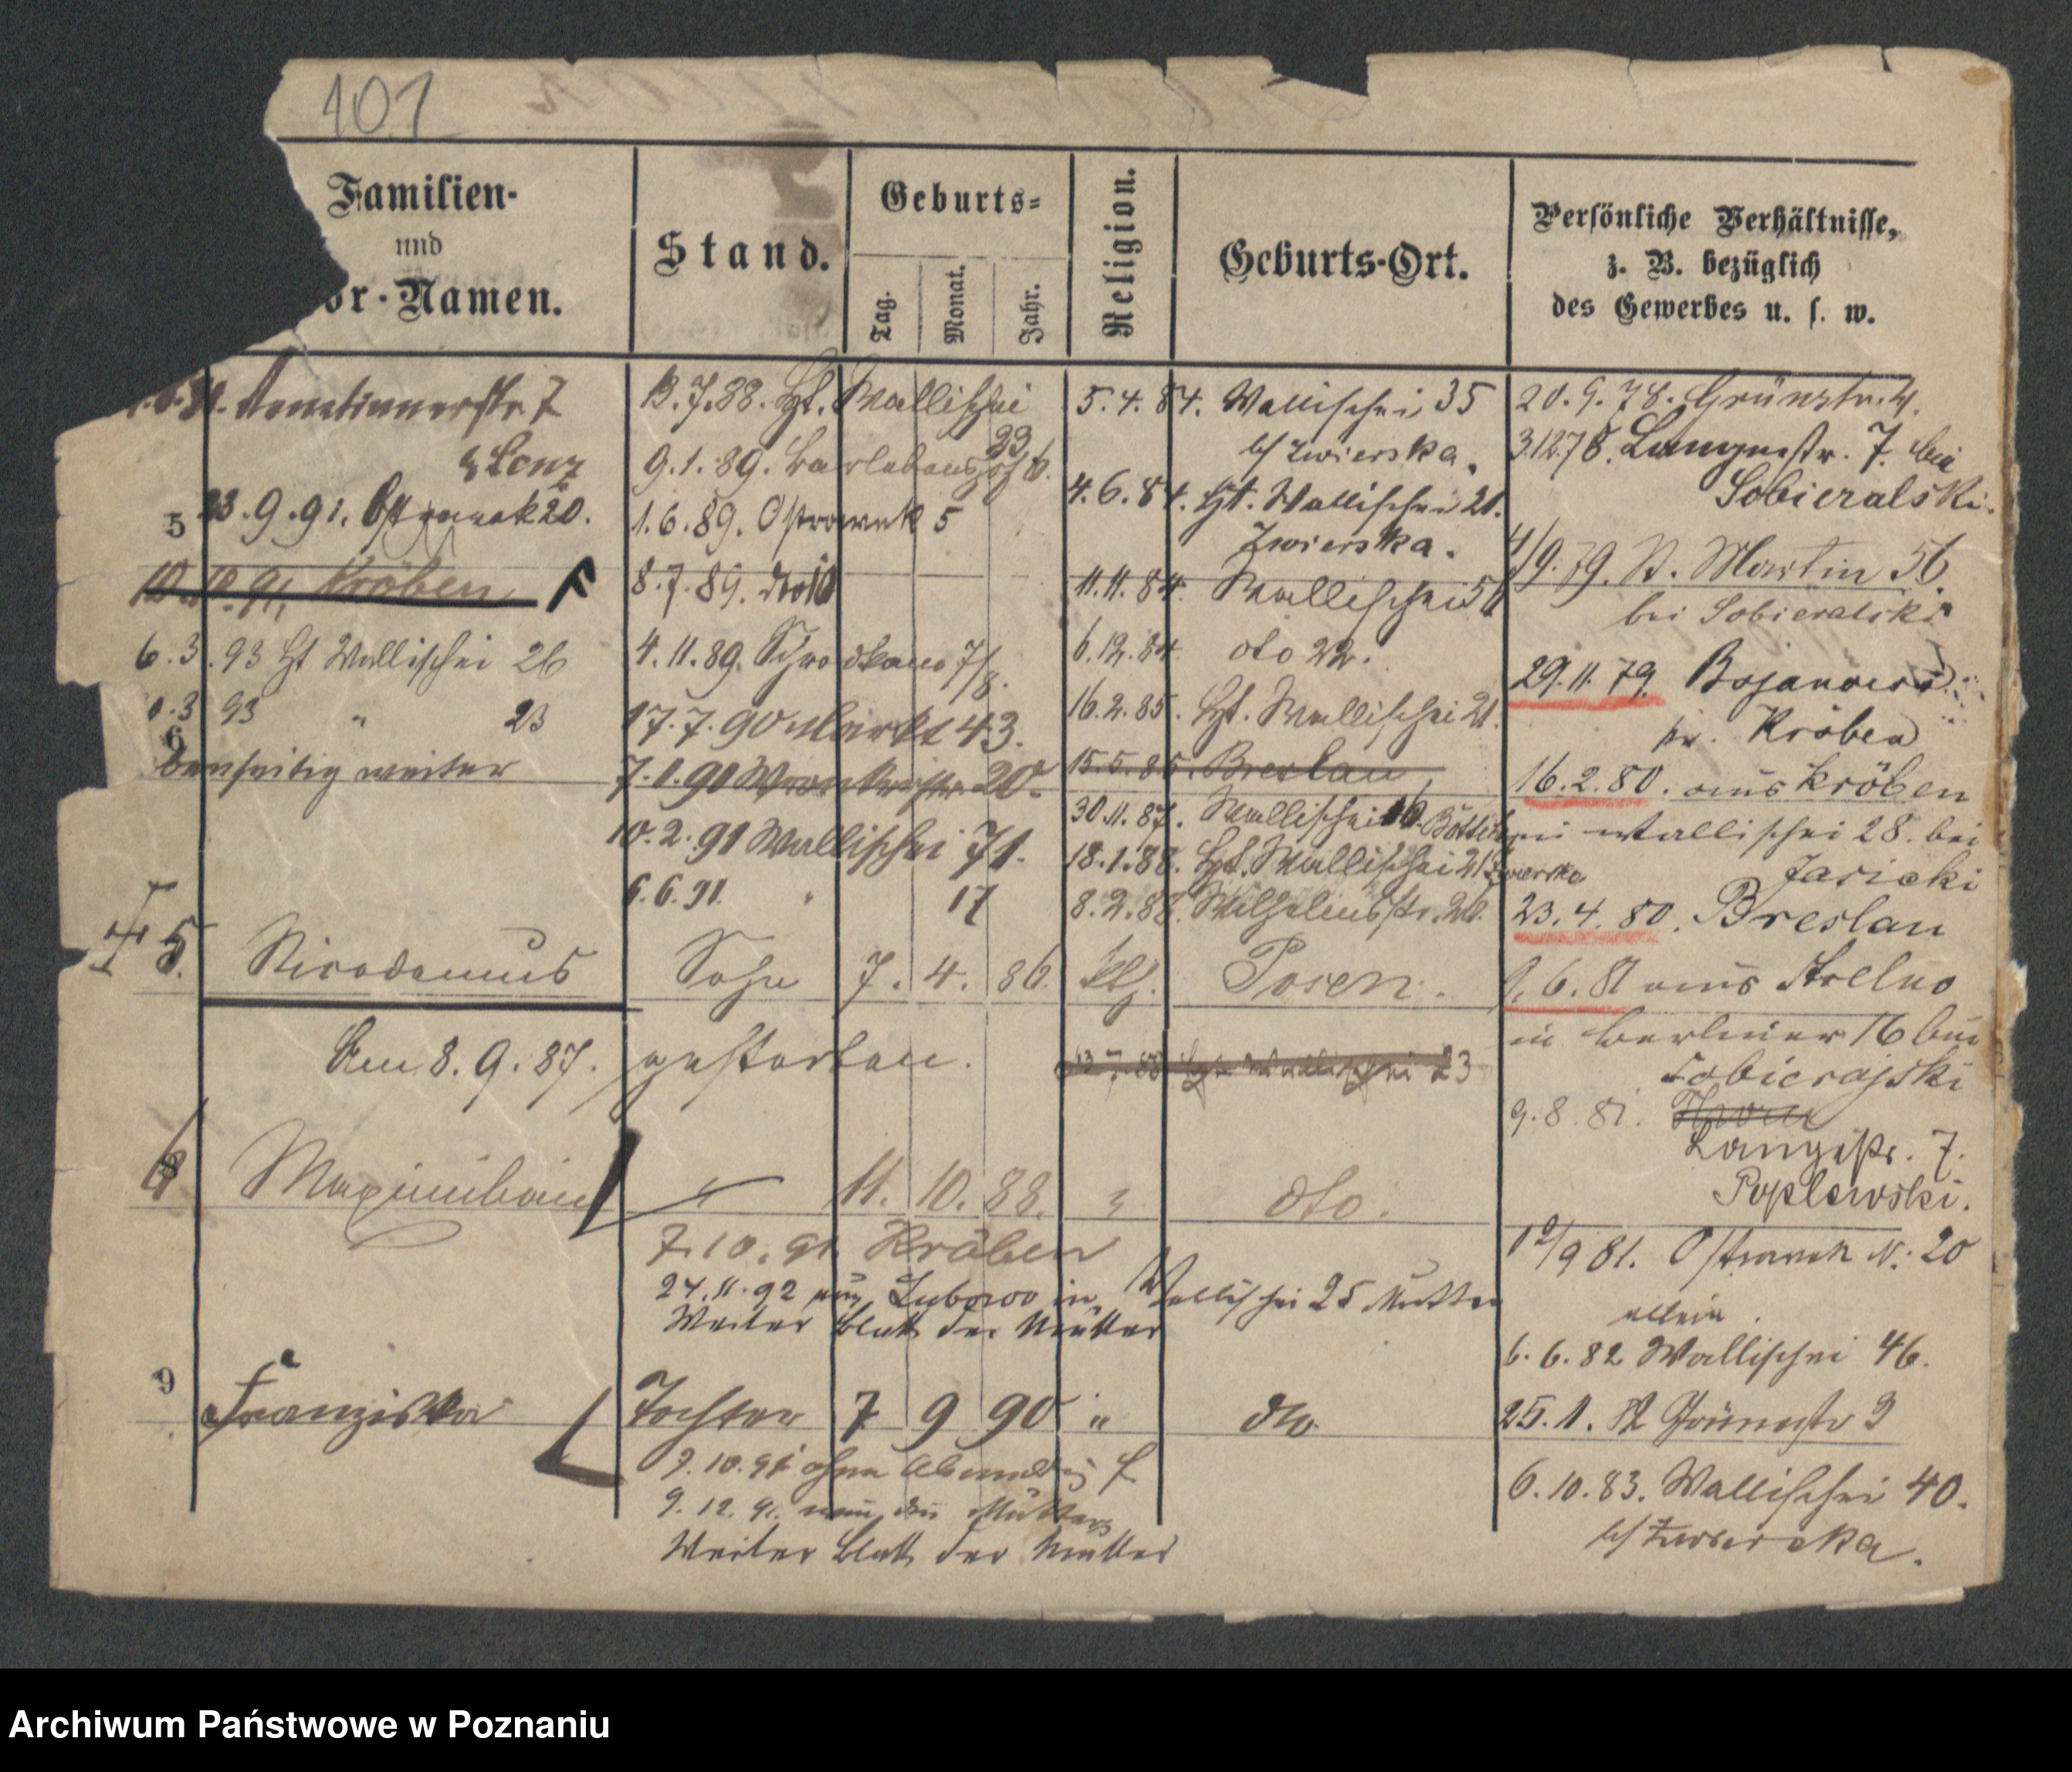 101
Familien-
und
or-Namen.
Stand.
Geburts-
Tag.
Monat.
Jahr.
Religion.
Geburts-Ort.
Persönliche Verhältnisse,
z. B. bezüglich
des Gewerbes u. s. w.
Venetianerstr 7
Lenz
5 23.9.91. Ostrowek 20.
10.10.91. Kröben
6.3.93 Ht Wallischei 26
93 " 23
umseitig weiter
13.7.88. Ht. Wallischei
23
9.1.89.
1.6.89. Ostrowek 5
8.7.89. No 10
4.11.89. Schrodkaer 7/8.
17.7.90 Markt 43.
7.1.91 Wronkerstr. 20.
10.2.91 Wallischei 71.
6.6.91. " 17
5.4.84. Wallischei 35
b/ Zwierska.
4.6.84. Ht. Wallischei 21.
Zwierska.
11.11.84. Wallischei 56
6.12.84. dto 22.
16.2.85. Ht. Wallischei 21.
15.5.85. Breslau
30.11.87. Wallischei 16.
18.1.88. Ht. Wallischei 21 Zwierska
8.2.88. Wilhelmsstr. 20.
20.9.78. Grünstr. 4.
3.12.78. Langestr. 7. bei
Sobieralski.
4/9.79. St. Martin 56
bei Sobieralski
29.11.79. Bojanowo
Kr. Kröben
16.2.80. aus Kröben
in Wallischei 28. bei
Jasicki
23.4.80. Breslau
9.6.81 aus Strelno
in Berliner 16 bei
Sobierajski
9.8.81. Thorn
Langestr. 7.
Poplewski.
19/9 81. Ostrowek N. 20
allein.
6.6.82 Wallischei 46.
25.11.82 Grünestr 3
6.10.83. Wallischei 40.
b/ Zwierska.
5. Nicodemus Sohn 7. 4. 86. kth. Posen.
Am 8.9.87. gestorben.
13.7.88 Ht Wallischei 23
Maximilian " 11. 10. 88. " dto.
7.10.91 Kröben
24.11.92 aus Lubowo in Wallischei 25 Mutter
Weiter Blatt der Mutter
9 Franziska Tochter 7 9 90 " dto
9.10.91 ohne Abmeldung f
9.12.91
Weiter Blatt der Mutter
Archiwum Państwowe w Poznaniu